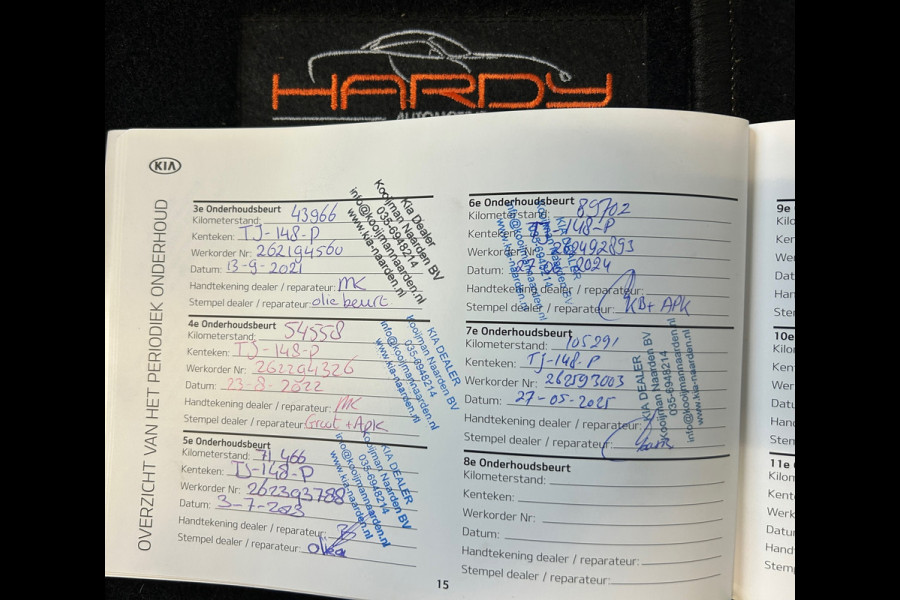 HARDY
KIA
OVERZICHT VAN HET PERIODIEK ONDERHOUD
3e Onderhoudsbeurt
Kilometerstand: 43966
Kenteken: TJ-148-P
Werkorder Nr: 262194560
Datum: 13-9-2021
Handtekening dealer / reparateur: MK
Stempel dealer / reparateur: olie beurt
Kia Dealer
Kooijman Naarden BV
035-6948214
info@kooijmannaarden.nl
www.kia-naarden.nl
4e Onderhoudsbeurt
Kilometerstand: 54558
Kenteken: TJ-148-P
Werkorder Nr: 262294326
Datum: 23-8-2022
Handtekening dealer / reparateur: MK
Stempel dealer / reparateur: Groot + APK
KIA DEALER
Kooijman Naarden BV
035-6948214
info@kooijmannaarden.nl
www.kia-naarden.nl
5e Onderhoudsbeurt
Kilometerstand: 71466
Kenteken: TJ-148-P
Werkorder Nr: 262393788
Datum: 3-7-2023
Handtekening dealer / reparateur:
Stempel dealer / reparateur:
KIA DEALER
Kooijman Naarden BV
035-6948214
info@kooijmannaarden.nl
www.kia-naarden.nl
6e Onderhoudsbeurt
Kilometerstand: 89702
Kenteken: 148-P
Werkorder Nr: 262492893
Datum: 2024
Handtekening dealer / reparateur:
Stempel dealer / reparateur: KB + APK
KIA DEALER
Kooijman Naarden BV
035-6948214
info@kooijmannaarden.nl
www.kia-naarden.nl
7e Onderhoudsbeurt
Kilometerstand: 105291
Kenteken: TJ-148-P
Werkorder Nr: 262593003
Datum: 27-05-2025
Handtekening dealer / reparateur:
Stempel dealer / reparateur:
KIA DEALER
Kooijman Naarden BV
035-6948214
info@kooijmannaarden.nl
www.kia-naarden.nl
8e Onderhoudsbeurt
Kilometerstand:
Kenteken:
Werkorder Nr:
Datum:
Handtekening dealer / reparateur:
Stempel dealer / reparateur:
15
9e
10e
11e